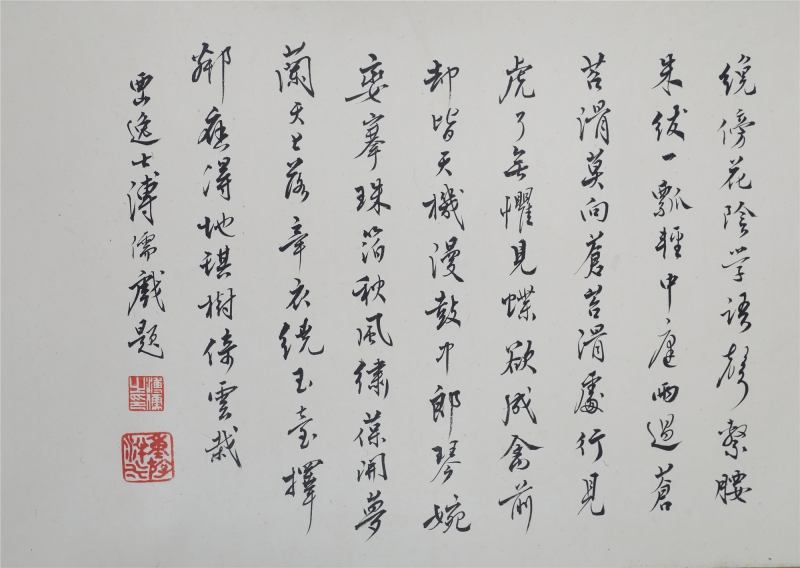 繞傍花陰学語聲繫腰
朱紱一瓢輕中庭雨過蒼
苔滑莫向蒼苔滑處行見
虎了無懼見蝶欲成禽前
却皆天機漫鼓中郎琴婉
孌搴珠箔秋風繡葆開夢
蘭天上落辛衣繞玉臺擇
鄰應得地琪樹倚雲栽
西逸士溥儒戲題
溥儒之印